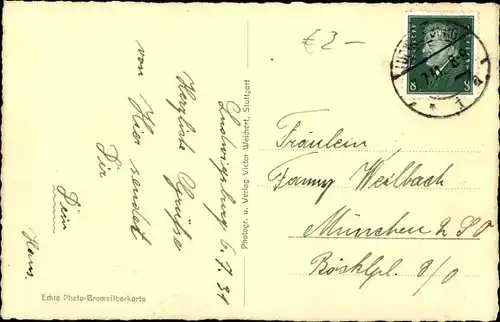 € 2-
8 8
Ludwigsburg 6.7.31
Herzliche Grüße
von Hier sendet
Dir
Dein
Hans.
Photogr. u. Verlag Victor Weichert, Stuttgart
Fräulein
Fanny Weilbach
München 2 SO
Echte Photo-Bromsilberkarte